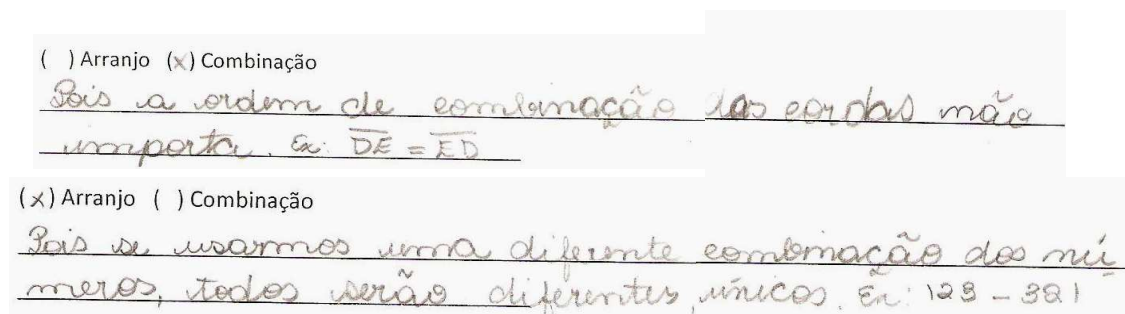 ( ) Arranjo (x) Combinação
Pois a ordem de combinação das cordas não
importa. Ex: D̅E̅ = E̅D̅
(x) Arranjo ( ) Combinação
Pois se usarmos uma diferente combinação dos nú
meros, todos serão diferentes, únicos. Ex: 123 - 321